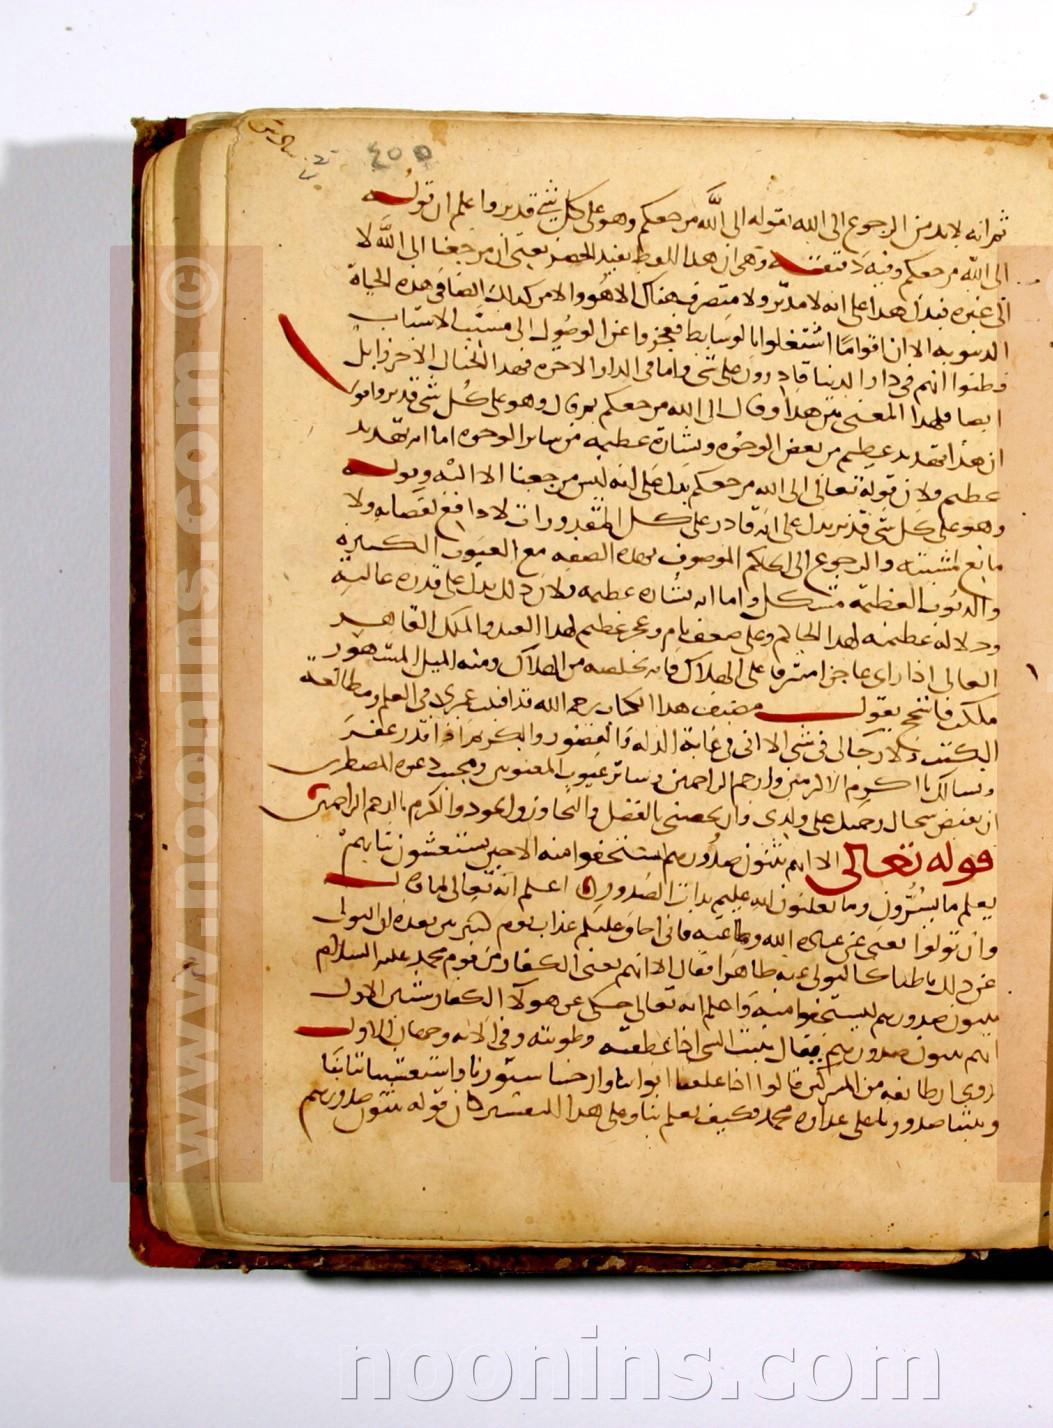 ٤٥٥
ثم انه لا بد من الرجوع الى الله لقوله الى الله مرجعكم وهو على كل شئ قدير واعلم ان قوله
الى الله مرجعكم وفيه دقيقة وهى ان هذا اللفظ يفيد الحصر يعنى ان مرجعنا الى الله لا
الى غيره فيدل هذا على انه لا مدبر ولا متصرف هناك الا هو والامر كذلك ايضا فى هذه الحياة
الدنيوية الا ان اقواما اشتغلوا بالوسايط فعجزوا عن الوصول الى مسبب الاسباب
فظنوا انهم فى دار الدنيا قادرون على شئ واما فى الدار الاخرة فهذا الخيال الاخر زايل
ايضا فلهذا المعنى بين هذا وقال الى الله مرجعكم ثم قال وهو على كل شئ قدير واقول
ان هذا تهديد عظيم من بعض الوجوه وبشارة عظيمه من ساير الوجوه اما انه تهديد
عظيم فلان قوله تعالى الى الله مرجعكم يدل على انه ليس مرجعنا الا اليه وقوله
وهو على كل شئ قدير يدل على انه قادر على كل المقدورات لا دافع لقضايه ولا
مانع لمشيته والرجوع الى الحاكم الموصوف بهذه الصفه مع العيوب الكثيرة
والذنوب العظيمة مشكل واما انه بشاره عظيمه فلان ذلك يدل على قدره عالية
وجلالة عظيمه لهذا الحاكم وعلى ضعف تام وعجز عظيم لهذا العبد والملك القاهر
العالى اذا راى عاجزا مشرفا على الهلاك فانه يخلصه من الهلاك ومنه المثل المشهور
ملكت فاسجح يقول مصنف هذا الكتاب رحمه الله قد افنيت عمرى فى العلم ومطالعة
الكتب ولا رجا لى فى شئ الا انى فى غاية الذلة والقصور والكريم اذا قدر غفر
ونسالك يا اكرم الاكرمين وارحم الراحمين وساتر عيوب المعيوبين ومجيب دعوه المضطرين
ان تفيض سجال رحمتك على ولدى وان تخصنى بالفضل والتجاوز والجود والكرم يا ارحم الراحمين
قوله تعالى الا انهم يثنون صدورهم ليستخفوا منه الا حين يستغشون ثيابهم
يعلم ما يسرون وما يعلنون انه عليم بذات الصدور اعلم انه تعالى لما قال
وان تولوا يعنى عن عباده الله وطاعته فانى اخاف عليكم عذاب يوم كبير بين بعده ان التولى
عن ذلك باطنا كالتولى عنه ظاهرا فقال الا انهم يعنى الكفار من قوم محمد عليه السلام
يثنون صدورهم ليستخفوا منه واعلم انه تعالى حكى عن هولآ الكفار شيئين الاول
انهم يثنون صدورهم يقال ثنيت الشى اذا عطفته وطويته وفى الايه وجهان الاول
روى ان طايفه من المشركين قالوا اذا غلقنا ابوابنا وارخينا ستورنا واستغشينا ثيابنا
وثنينا صدورنا على عداوه محمد فكيف يعلم بنا وعلى هذا التقدير كان قوله يثنون صدورهم
www.noonins.com ©
noonins.com